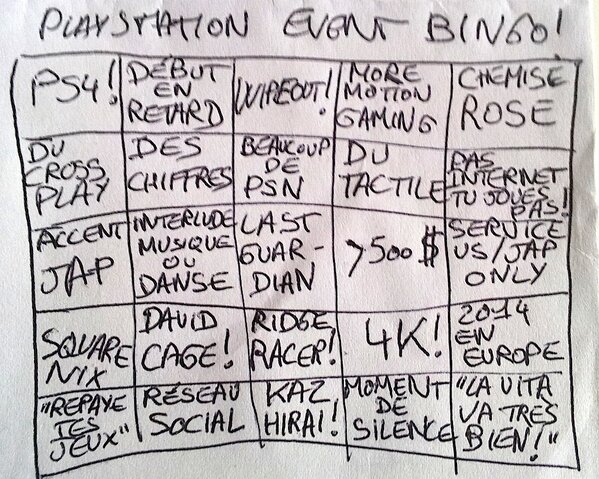 PLAYSTATION EVENT BINGO!
PS4!
DÉBUT
EN
RETARD
WIPEOUT!
MORE
MOTION
GAMING
CHEMISE
ROSE
DU
CROSS
PLAY
DES
CHIFFRES
BEAUCOUP
DE
PSN
DU
TACTILE
PAS
INTERNET
TU JOUES
PAS!
ACCENT
JAP
INTERLUDE
MUSIQUE
OU
DANSE
LAST
GUAR-
DIAN
>500$
SERVICE
US/JAP
ONLY
SQUARE
NIX
DAVID
CAGE!
RIDGE
RACER!
4K!
2014
EN
EUROPE
"REPAYE
TES
JEUX"
RÉSEAU
SOCIAL
KAZ
HIRAI!
MOMENT
DE
SILENCE
"LA VITA
VA TRES
BIEN!"